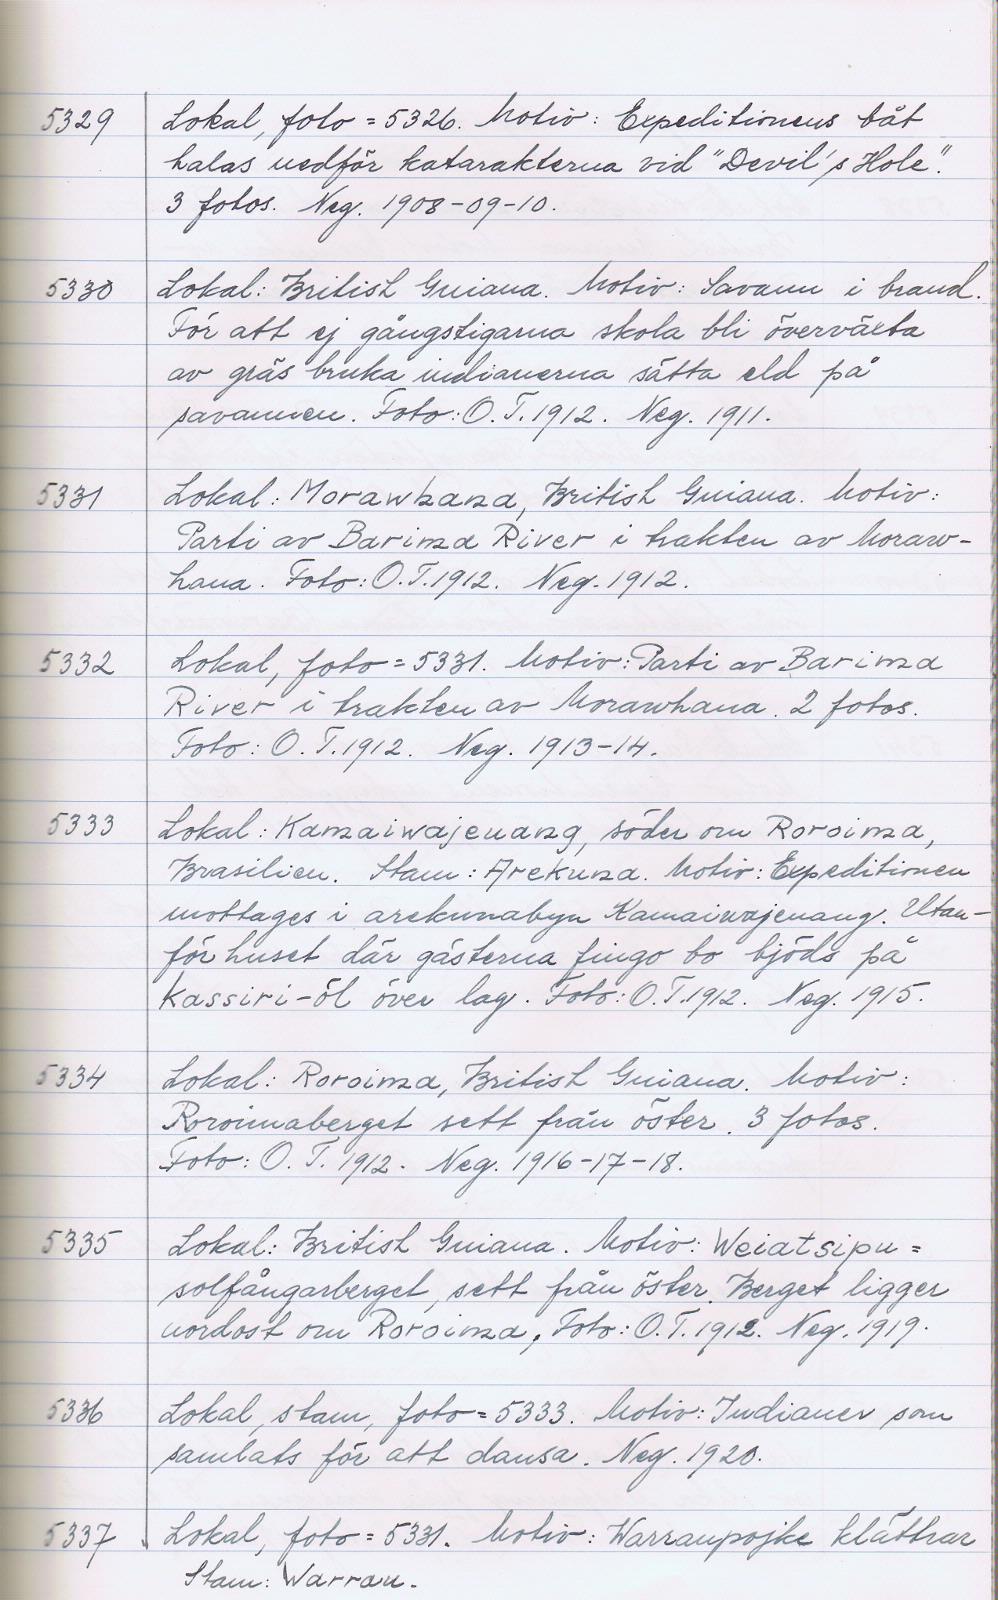 5329 Lokal, foto = 5326. Motiv: Expeditionens båt
halas nedför katarakterna vid "Devil's Hole".
3 fotos. Neg. 1908-09-10.
5330 Lokal: British Guiana. Motiv: Savann i brand.
För att ej gångstigarna skola bli överväxta
av gräs bruka indianerna sätta eld på
savannen. Foto: O.T. 1912. Neg. 1911.
5331 Lokal: Morawhana, British Guiana. Motiv:
Parti av Barima River i trakten av Moraw-
hana. Foto: O.T. 1912. Neg. 1912.
5332 Lokal, foto = 5331. Motiv: Parti av Barima
River i trakten av Morawhana. 2 fotos.
Foto: O.T. 1912. Neg. 1913-14.
5333 Lokal: Kamaiwajenang, söder om Roroima,
Brasilien. Stam: Arekuna. Motiv: Expeditionen
mottages i arekunabyn Kamaiwajenang. Utan-
för huset där gästerna fingo bo bjöds på
Kassiri-öl över lag. Foto: O.T. 1912. Neg. 1915.
5334 Lokal: Roroima, British Guiana. Motiv:
Roroimaberget sett från öster. 3 fotos.
Foto: O.T. 1912. Neg. 1916-17-18.
5335 Lokal: British Guiana. Motiv: Weiatsipu =
solfångarberget, sett från öster. Berget ligger
nordost om Roroima. Foto: O.T. 1912. Neg. 1919.
5336 Lokal, stam, foto = 5333. Motiv: Indianer som
samlats för att dansa. Neg. 1920.
5337 Lokal, foto = 5331. Motiv: Warraupojke klättrar
Stam: Warrau.